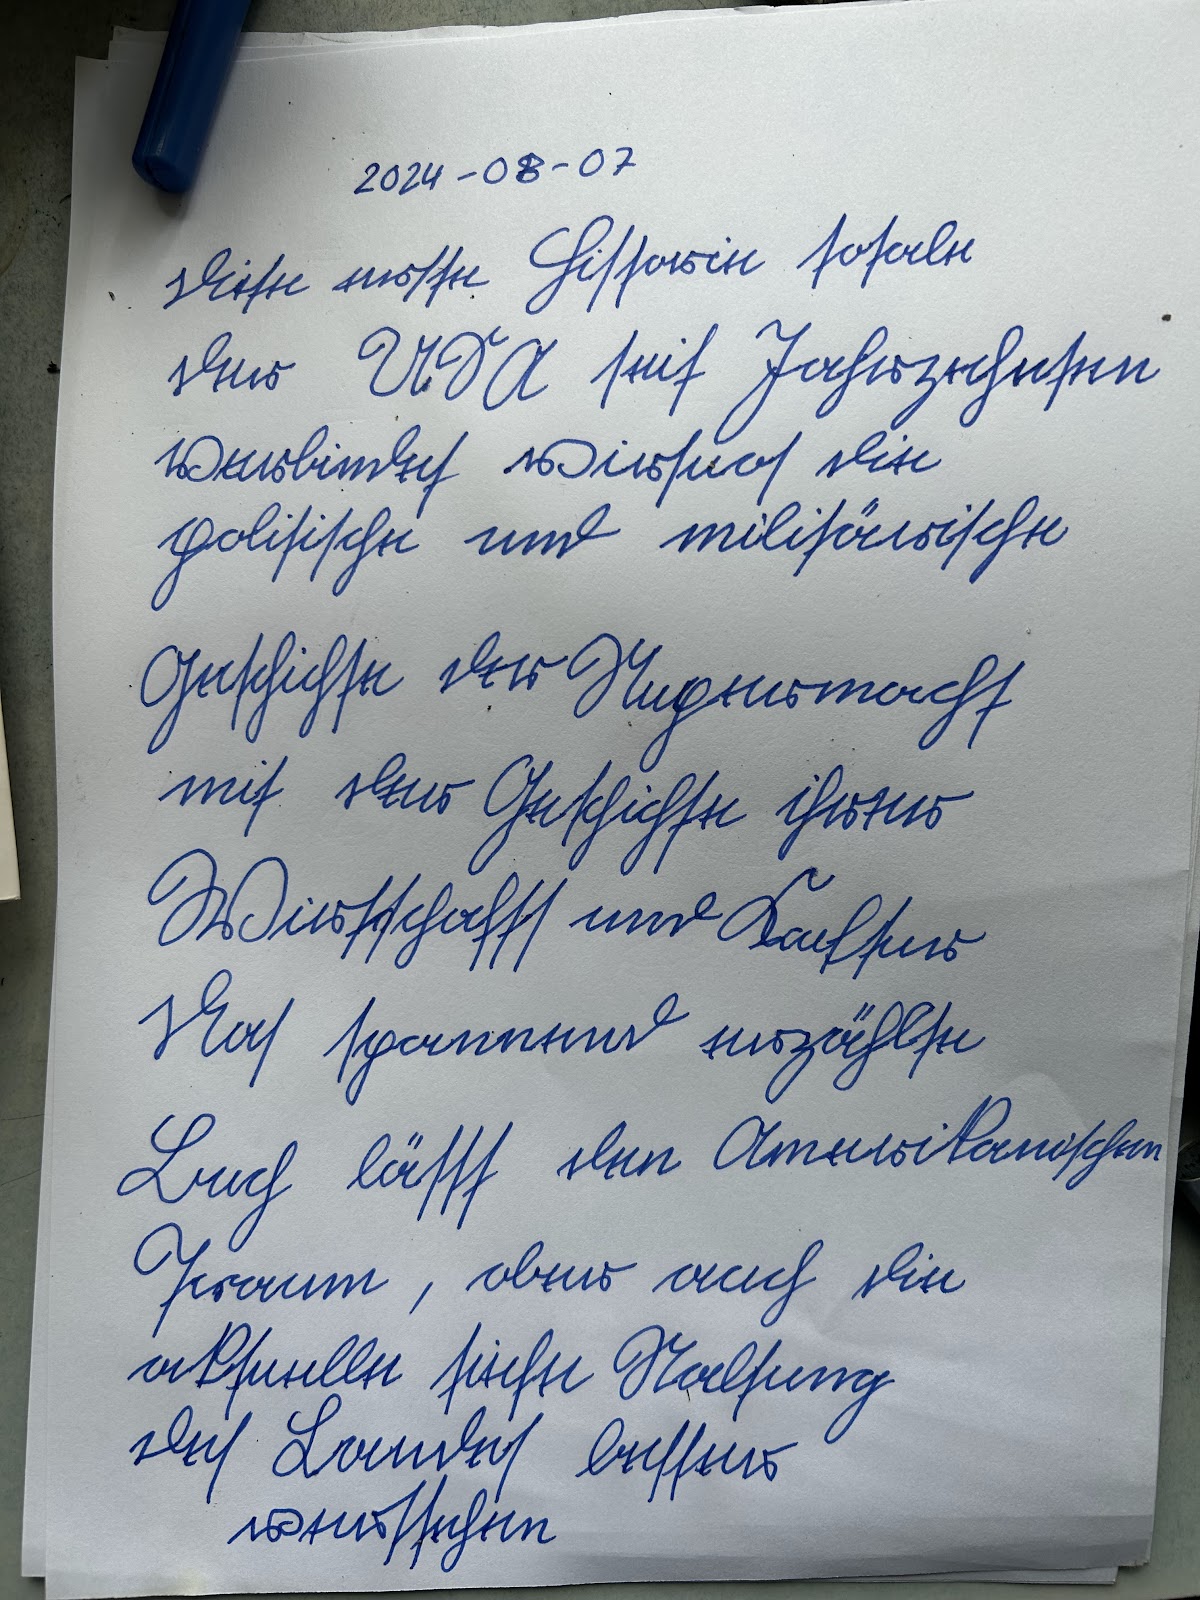 2024-08-07
Diese erste Histoire totale
der USA seit Jahrzehnten
verbindet virtuos die
politische und militärische
Geschichte der Supermacht
mit der Geschichte ihrer
Wirtschaft und Kultur
Das spannend erzählte
Buch lässt den Amerikanischen
Traum, aber auch die
aktuelle tiefe Spaltung
des Landes besser
verstehen